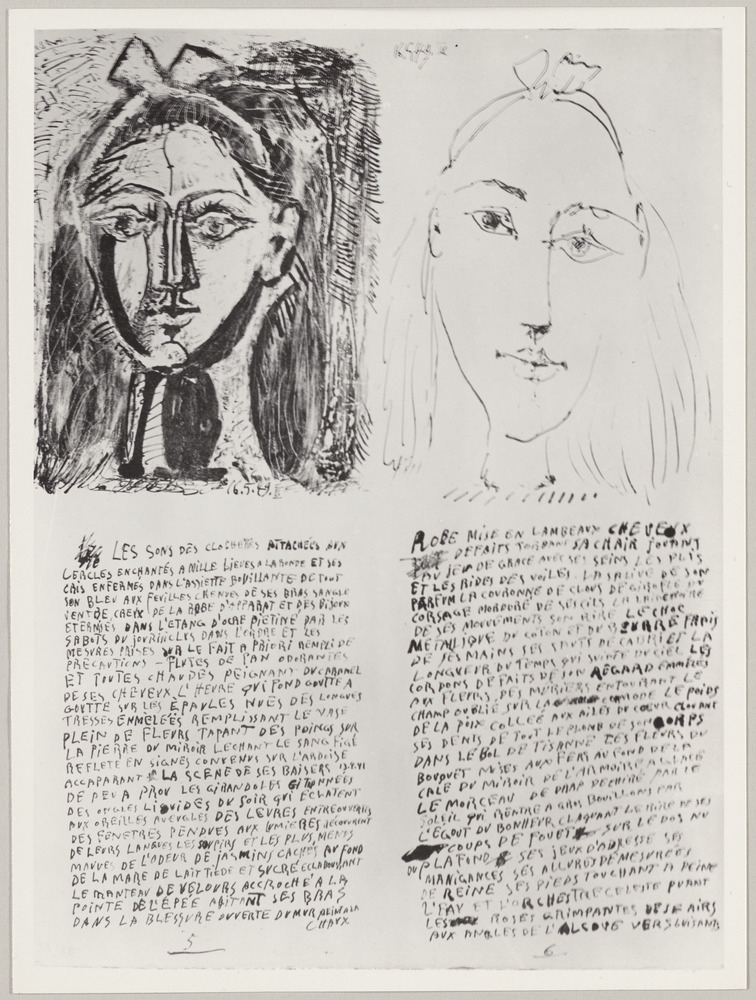 16.5.49.
LES SONS DES CLOCHETTES ATTACHÉES AUX
CERCLES ENCHANTÉS A MILLE LIEUES A LA RONDE ET SES
CRIS ENFERMÉS DANS L'ASSIETTE BOUILLANTE DE TOUT
SON BLEU AUX FEUILLES DE SES BRAS
VENTRE CREUX DE LA ROBE D'APPARAT ET DES BIJOUX
DANS L'ETANG D'OCRE PIETINÉ PAR LES
SABOTS DU DANS L'ORDRE ET LES
MESURES PRISES SUR LE FAIT A PRIORI REMPLI DE
PRÉCAUTIONS - FLUTES DE PAN ODORANTES
ET TOUTES CHAUDES PEIGNANT DU CARAMEL
DE SES CHEVEUX L'HEURE QUI FOND GOUTTE A
GOUTTE SUR LES ÉPAULES NUES DES LONGUES
TRESSES EMMELÉES REMPLISSANT LE VASE
PLEIN DE FLEURS TAPANT DES POINGS SUR
LA PIERRE DU MIROIR LECHANT LE SANG FIGÉ
REFLETÉ EN SIGNES CONVENUS SUR L'ARDOISE
ACCAPARANT LA SCENE DE SES BAISERS
DE PEU A PROU LES GIRANDOLES
DES ONGLES LIQUIDES DU SOIR QUI ÉCLATENT
AUX OREILLES AVEUGLES DES LEVRES ENTREOUVERTES
DES FENETRES PENDUES AUX LUMIERES
DE LEURS LANGUES LES SOUPIRS ET LES PLUS
MAUVES DE L'ODEUR DE JASMINS CACHÉS AU FOND
DE LA MARE DE LAIT TIEDE ET SUCRÉ ECLABOUSSANT
LE MANTEAU DE VELOURS ACCROCHÉ A LA
POINTE DE L'ÉPÉE ABITANT SES BRAS
DANS LA BLESSURE OUVERTE DU MUR
CHAUX
5
ROBE MISE EN LAMBEAUX CHEVEUX
DEFAITS SA CHAIR JOUANT
AU JEU DE GRACE AVEC SES SEINS LES PLIS
ET LES RIDES DES VOILES LA SALIVE DE SON
PARFUM LA COURONNE DE CLOUS DE GIROFLE DU
CORSAGE MORDORÉ DE SES CILS
DE SES MOUVEMENTS SON RIRE LE CHOC
METALLIQUE DU COTON ET DU
DE SES MAINS SES SAUTS DE CABRI ET LA
LONGUEUR DU TEMPS QUI DU CIEL LES
CORDONS DEFAITS DE SON REGARD EMMELÉS
AUX FLEURS DES MURIERS ENTOURANT LE
CHAMP OUBLIÉ SUR LA COMMODE LE POIDS
DE LA POIX COLLÉE AUX AILES DU COEUR CLOUANT
SES DENTS DE TOUT LE PLOMB DE SON CORPS
DANS LE BOL DE TISANNE DES FLEURS DU
BOUQUET MISES AUX FERS AU FOND DE LA
CALE DU MIROIR DE L'ARMOIRE A GLACE
LE MORCEAU DE DRAP DECHIRÉ PAR LE
SOLEIL QUI RENTRE A GROS BOUILLONS PAR
L'ÉGOUT DU BONHEUR CLAQUANT LE RIRE DE SES
COUPS DE FOUET SUR LE DOS NU
DU PLAFOND SES JEUX D'ADRESSE SES
MANIGANCES SES ALLURES DEMESURÉES
DE REINE SES PIEDS TOUCHANT A PEINE
L'EAU ET L'ORCHESTRE CELESTE PUANT
LES ROSES GRIMPANTES DE SE AIRS
AUX ANGLES DE L'ALCOVE
6